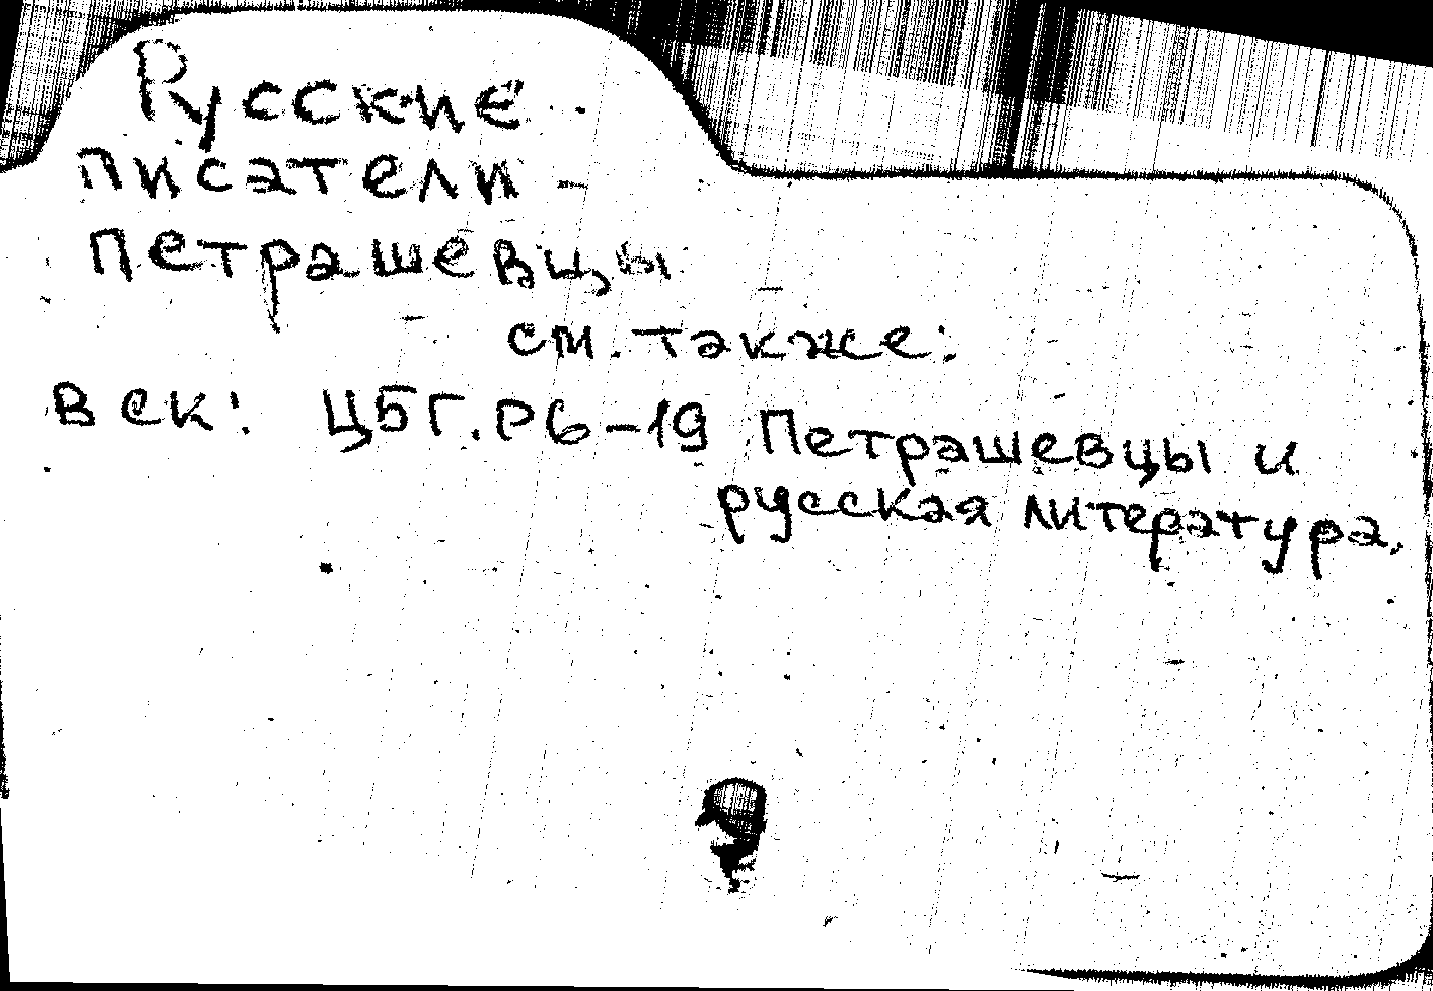 Русские
писатели -
петрашевцы
см. также:
в СК: Ц5Г.Р6-19 Петрашевцы и
русская литература.